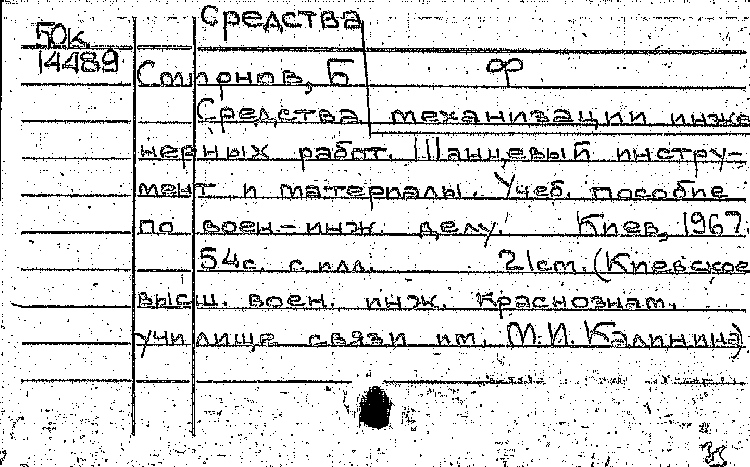 Средства
50к.
14489
Смирнов, Б ф
Средства механизации инже
нерных работ. Шанцевый инстру-
мент и материалы. Учеб. пособие
по воен-инж. делу. Киев, 1967.
54с. с илл. 21см. (Киевское
высш. воен. инж. краснознам.
училище связи им. М.И. Калинина)